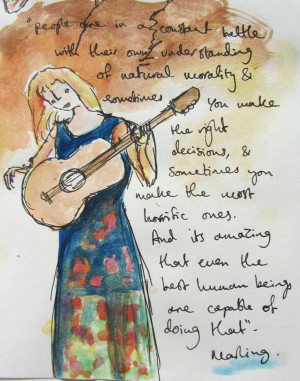 "people are in a constant battle
with their own understanding
of natural morality &
sometimes you make
the right
decisions, &
sometimes you
make the most
horrific ones.
And its amazing
that even the
best human beings
are capable of
doing that"-
Marling.